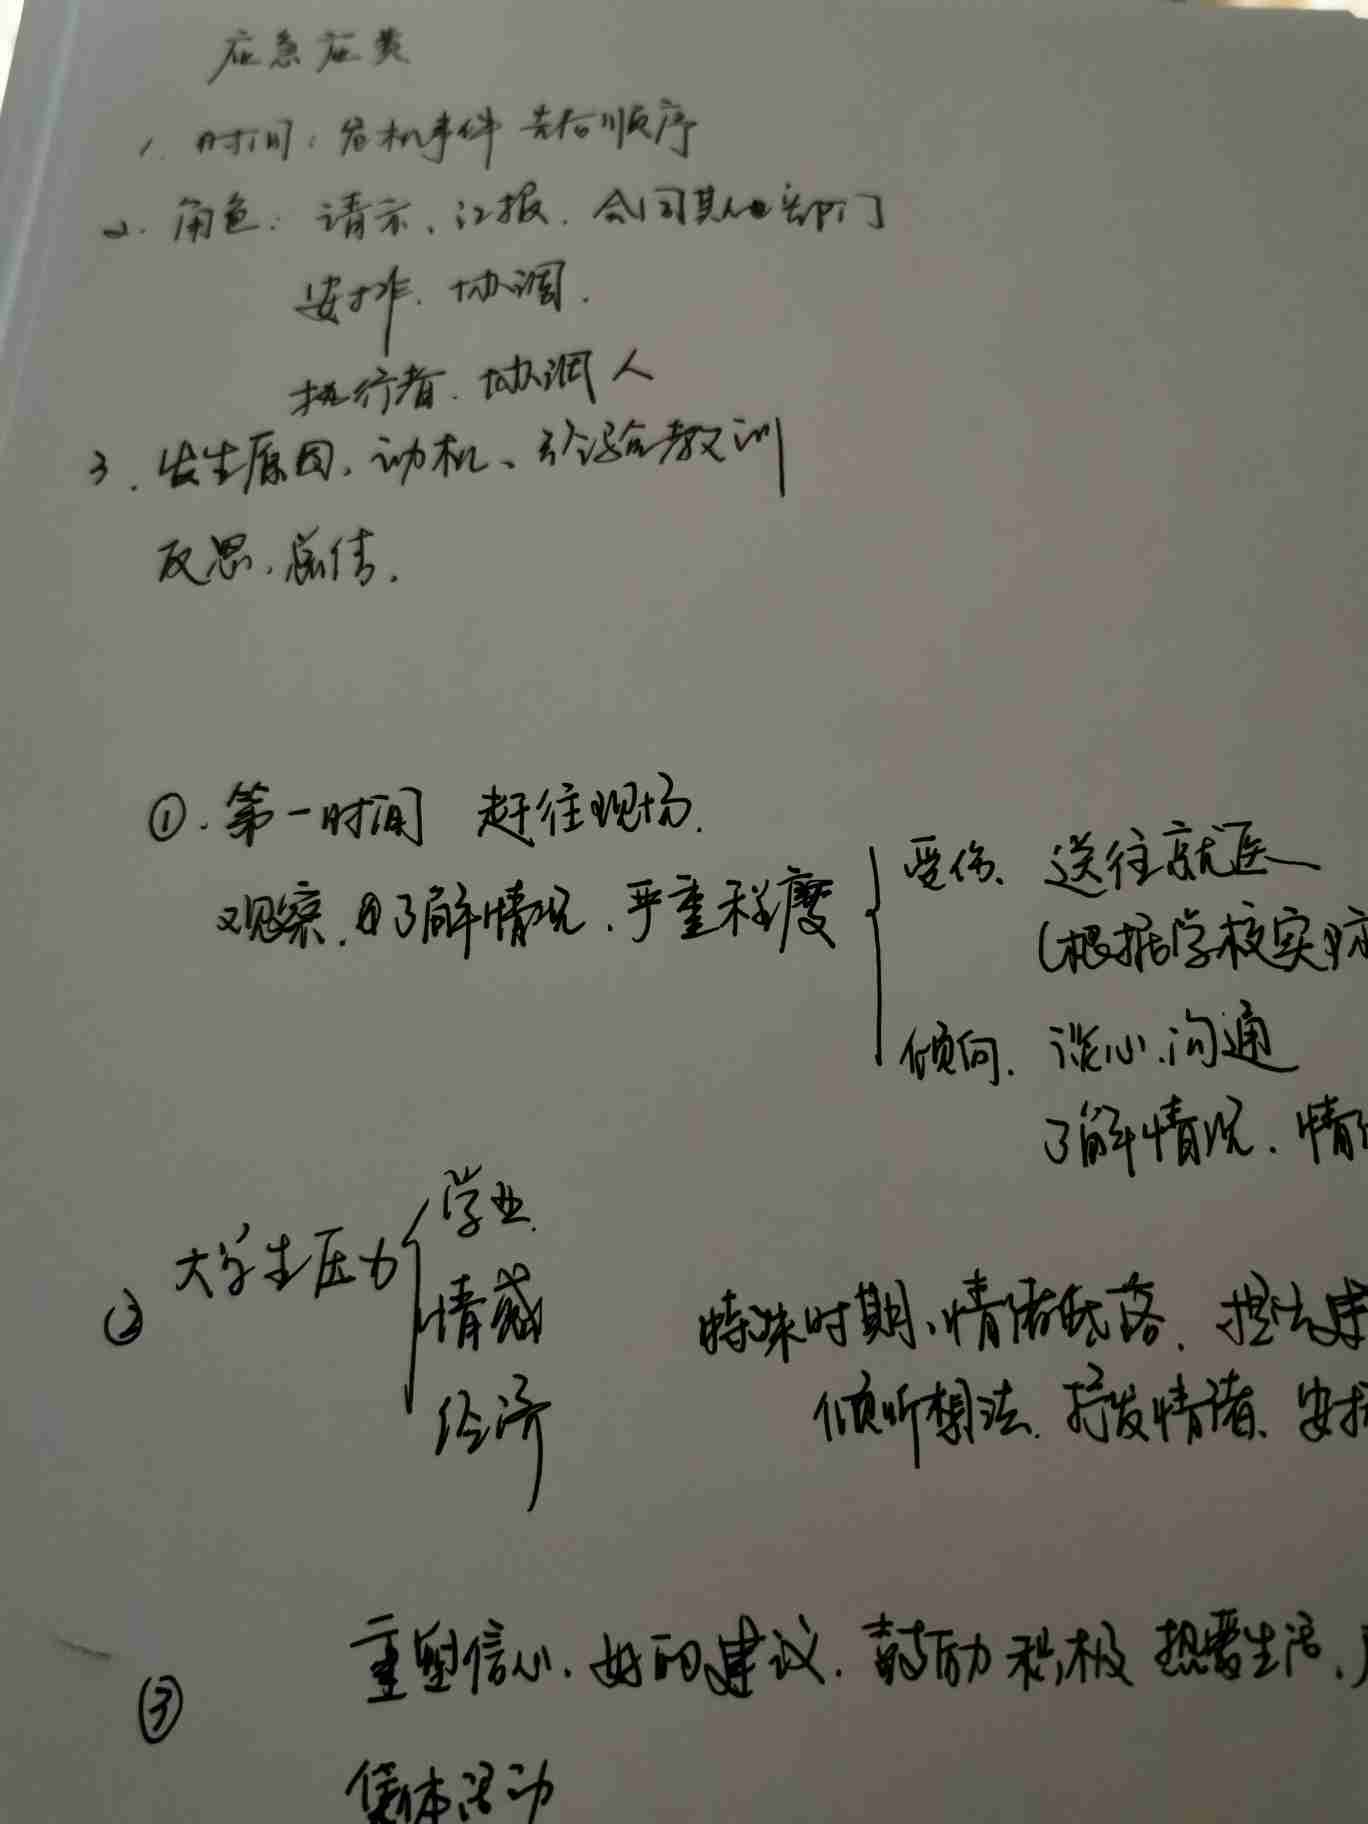 应急应类
1. 时间：危机事件 先后顺序
2. 角色：请示、汇报、会同其他部门
安排、协调.
执行者、协调人
3. 发生原因、动机、经验教训
反思、总结.
①. 第一时间 赶往现场.
观察、了解情况、严重程度
受伤、送往就医
(根据学校实际
倾向、谈心、沟通
了解情况、情
② 大学生压力
学业
情感
经济
特殊时期、情绪低落、提出建
倾听想法、抒发情绪、安抚
③ 重塑信心、好的建议、鼓励积极 热爱生活、
集体活动